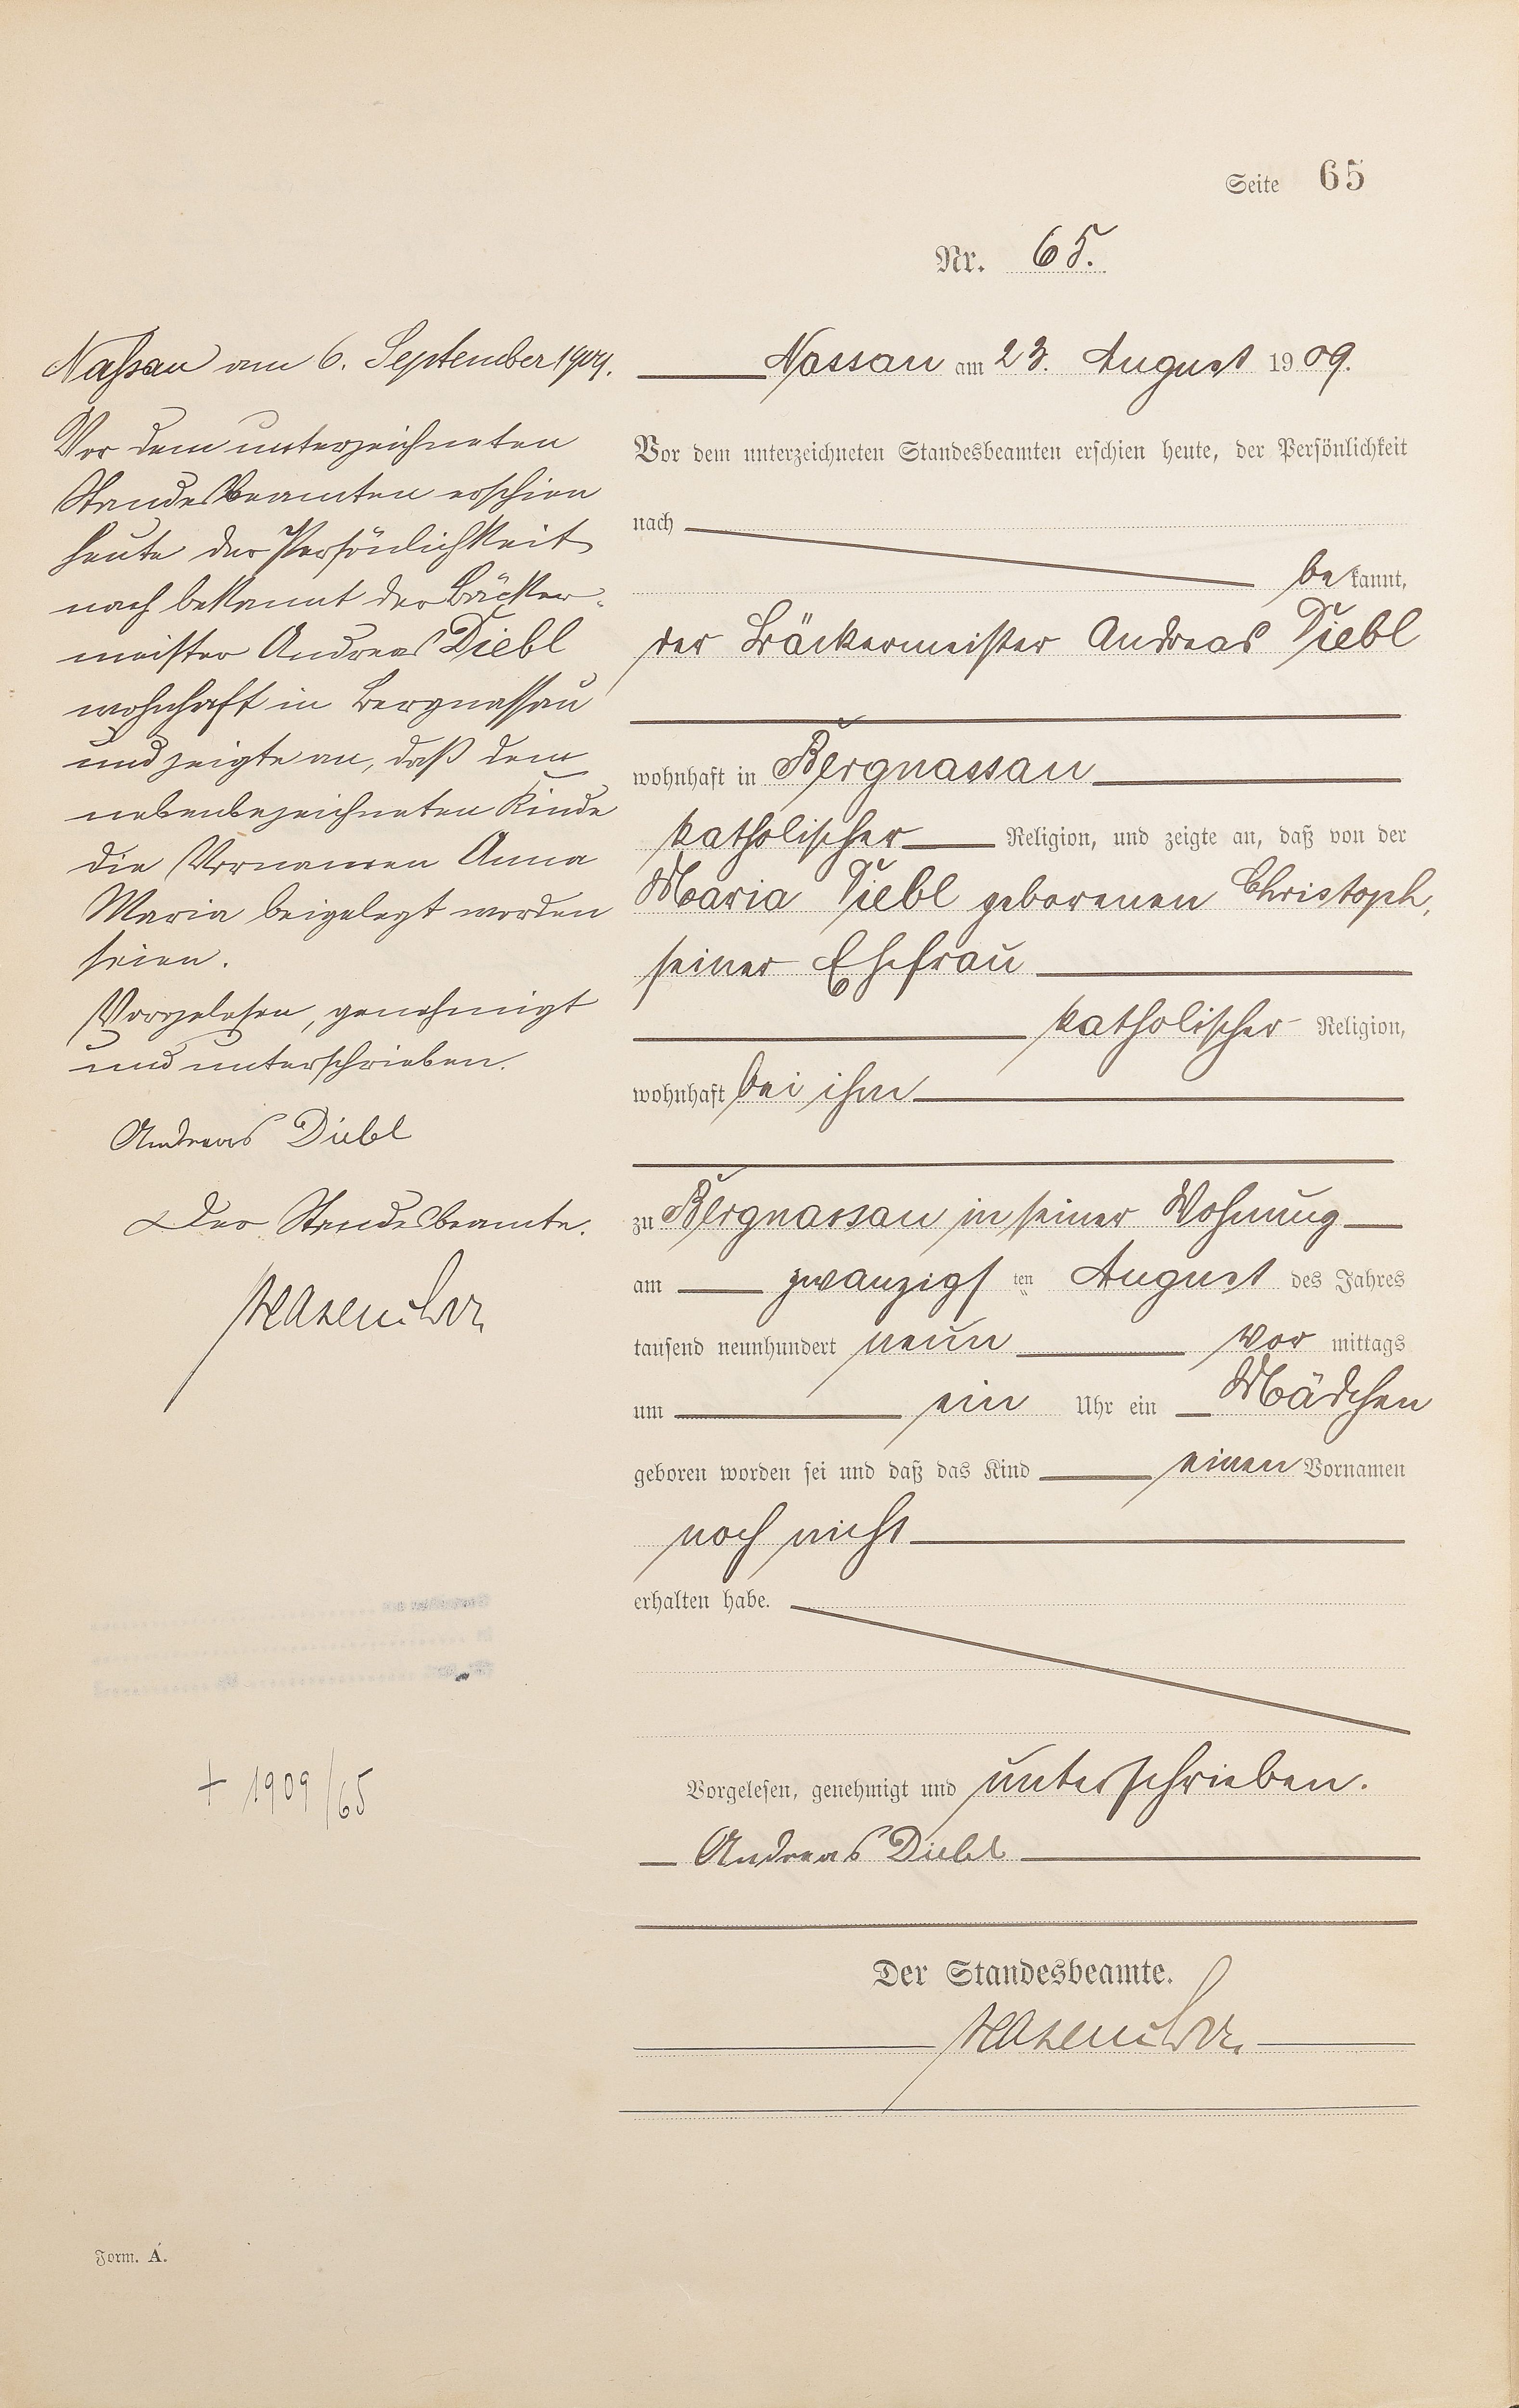 Seite 65
Nr. 65.
Nassau am 6. September 1909.
Vor dem unterzeichneten
Standesbeamten erschien
heute der Persönlichkeit
nach bekannt der Bäcker-
meister Andreas Diebl
wohnhaft in Bergnassau
und zeigte an, daß dem
nebenbezeichneten Kinde
die Vornamen Anna
Maria beigelegt worden
seien.
Vorgelesen, genehmigt
und unterschrieben.
Andreas Diebl
Der Standesbeamte.
+ 1909/65
Nassau am 23. August 1909.
Vor dem unterzeichneten Standesbeamten erschien heute, der Persönlichkeit
nach
bekannt,
der Bäckermeister Andreas Diebl
wohnhaft in Bergnassau
katholischer Religion, und zeigte an, daß von der
Maria Diebl geborenen Christoph,
seiner Ehefrau
katholischer Religion,
wohnhaft bei ihm
zu Bergnassau in seiner Wohnung
am zwanzigsten August des Jahres
tausend neunhundert neun vor mittags
um ein Uhr ein Mädchen
geboren worden sei und daß das Kind einen Vornamen
noch nicht
erhalten habe.
Vorgelesen, genehmigt und unterschrieben.
Andreas Diebl
Der Standesbeamte.
Form. A.